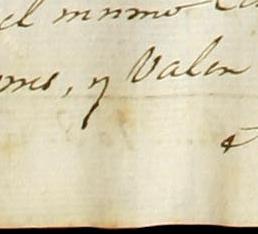 el mismo
mes, y Valen